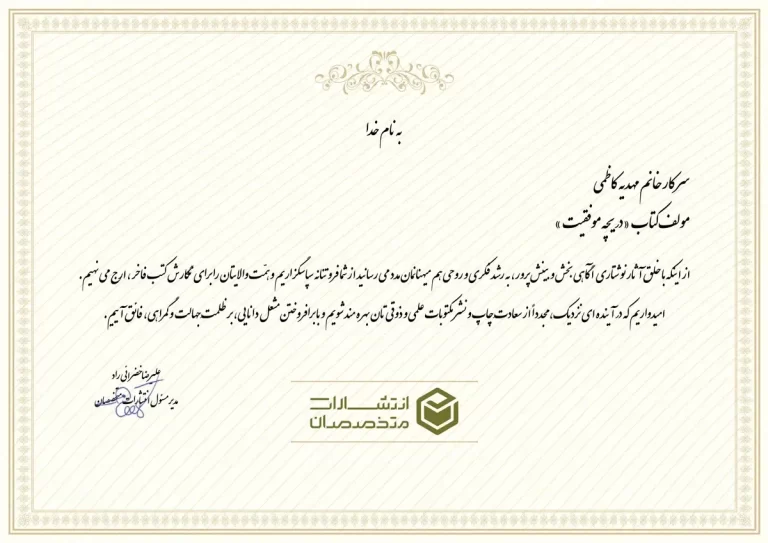 به نام خدا
سرکار خانم مهدیه کاظمی
مولف کتاب «دریچه موفقیت»
از اینکه با خلق آثار نوشتاری آگاهی بخش و بینش پرور، به رشد فکری و روحی هم میهنانمان مدد می رسانید از شما فروتنانه سپاسگزاریم و همّت والایتان را برای نگارش کتب فاخر، ارج می نهیم.
امیدواریم که در آینده ای نزدیک، مجدداً از سعادت چاپ و نشر مکتوبات علمی و ذوقی تان بهره مند شویم و با برافروختن مشعل دانایی، بر ظلمت جهالت و گمراهی، فائق آییم.
علیرضا خضرائی راد
مدیر مسئول انتشارات متخصصان
انتشارات
متخصصان